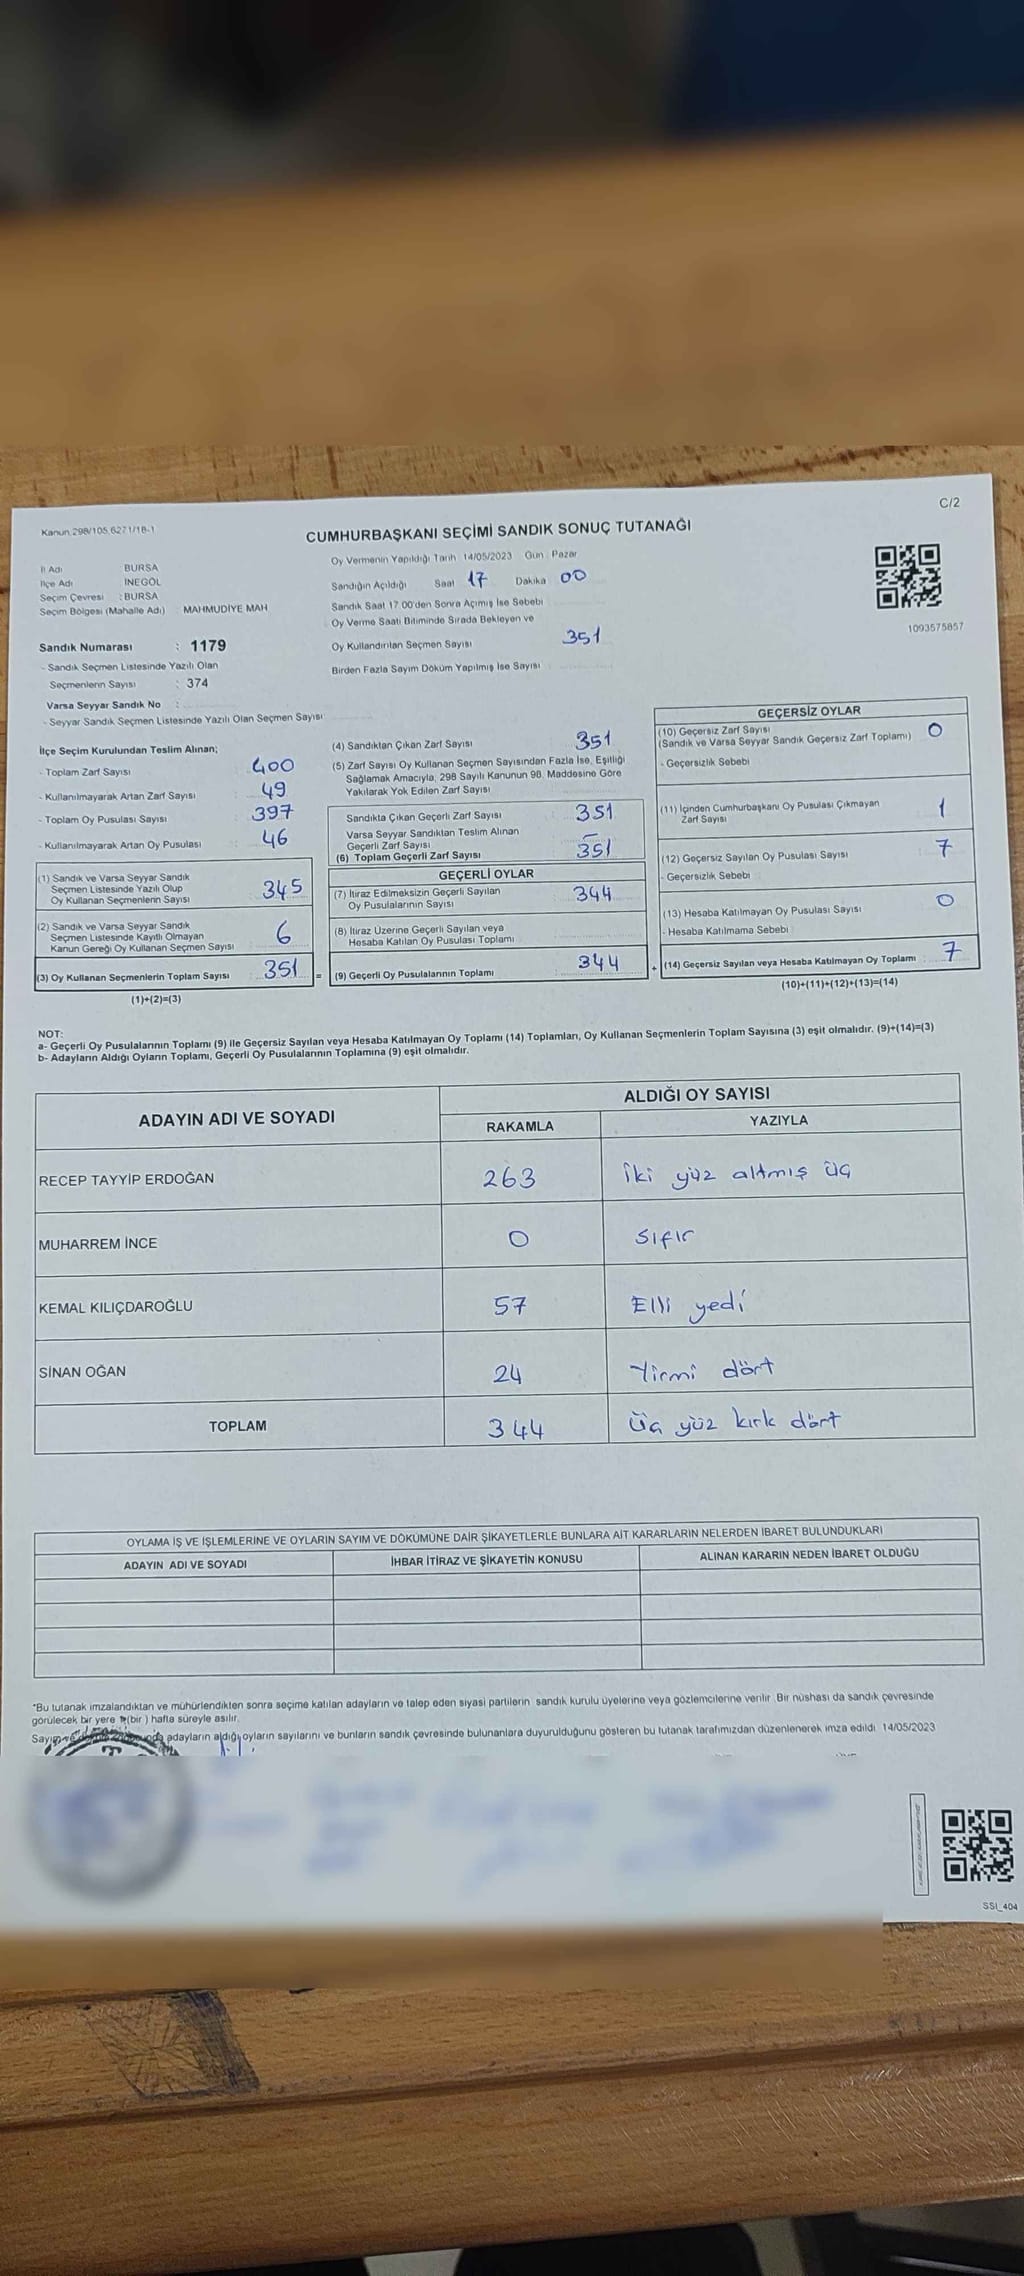 C/2
Kanun 298/105,6271/18-1
CUMHURBAŞKANI SEÇİMİ SANDIK SONUÇ TUTANAĞI
İl Adı BURSA
İlçe Adı İNEGÖL
Seçim Çevresi : BURSA
Seçim Bölgesi (Mahalle Adı) : MAHMUDİYE MAH
Oy Vermenin Yapıldığı Tarih 14/05/2023 Gün Pazar
Sandığın Açıldığı Saat 17 Dakika 00
Sandık Saat 17 00'den Sonra Açımış İse Sebebi
Oy Verme Saati Bitiminde Sırada Bekleyen ve
Oy Kullandırılan Seçmen Sayısı 351
Birden Fazla Sayım Döküm Yapılmış İse Sayısı
1093575857
Sandık Numarası : 1179
- Sandık Seçmen Listesinde Yazılı Olan
Seçmenlerin Sayısı : 374
Varsa Seyyar Sandık No :
- Seyyar Sandık Seçmen Listesinde Yazılı Olan Seçmen Sayısı
İlçe Seçim Kurulundan Teslim Alınan;
- Toplam Zarf Sayısı : 400
- Kullanılmayarak Artan Zarf Sayısı : 49
- Toplam Oy Pusulası Sayısı : 397
- Kullanılmayarak Artan Oy Pusulası : 46
(1) Sandık ve Varsa Seyyar Sandık
Seçmen Listesinde Yazılı Olup
Oy Kullanan Seçmenlerin Sayısı : 345
(2) Sandık ve Varsa Seyyar Sandık
Seçmen Listesinde Kayıtlı Olmayan
Kanun Gereği Oy Kullanan Seçmen Sayısı 6
(3) Oy Kullanan Seçmenlerin Toplam Sayısı : 351 =
(1)+(2)=(3)
(4) Sandıktan Çıkan Zarf Sayısı 351
(5) Zarf Sayısı Oy Kullanan Seçmen Sayısından Fazla İse, Eşitliği
Sağlamak Amacıyla, 298 Sayılı Kanunun 98. Maddesine Göre
Yakılarak Yok Edilen Zarf Sayısı
Sandıkta Çıkan Geçerli Zarf Sayısı : 351
Varsa Seyyar Sandıktan Teslim Alınan
Geçerli Zarf Sayısı : -
(6) Toplam Geçerli Zarf Sayısı : 351
GEÇERLİ OYLAR
(7) İtiraz Edilmeksizin Geçerli Sayılan
Oy Pusulalarının Sayısı : 344
(8) İtiraz Üzerine Geçerli Sayılan veya
Hesaba Katılan Oy Pusulası Toplamı
(9) Geçerli Oy Pusulalarının Toplamı : 344 +
GEÇERSİZ OYLAR
(10) Geçersiz Zarf Sayısı
(Sandık ve Varsa Seyyar Sandık Geçersiz Zarf Toplamı) 0
- Geçersizlik Sebebi
(11) İçinden Cumhurbaşkanı Oy Pusulası Çıkmayan
Zarf Sayısı 1
(12) Geçersiz Sayılan Oy Pusulası Sayısı : 7
- Geçersizlik Sebebi :
(13) Hesaba Katılmayan Oy Pusulası Sayısı : 0
- Hesaba Katılmama Sebebi :
(14) Geçersiz Sayılan veya Hesaba Katılmayan Oy Toplamı : 7
(10)+(11)+(12)+(13)=(14)
NOT:
a- Geçerli Oy Pusulalarının Toplamı (9) ile Geçersiz Sayılan veya Hesaba Katılmayan Oy Toplamı (14) Toplamları, Oy Kullanan Seçmenlerin Toplam Sayısına (3) eşit olmalıdır. (9)+(14)=(3)
b- Adayların Aldığı Oyların Toplamı, Geçerli Oy Pusulalarının Toplamına (9) eşit olmalıdır.
ADAYIN ADI VE SOYADI ALDIĞI OY SAYISI
RAKAMLA YAZIYLA
RECEP TAYYİP ERDOĞAN 263 İki yüz altmış üç
MUHARREM İNCE 0 Sıfır
KEMAL KILIÇDAROĞLU 57 Elli yedi
SİNAN OĞAN 24 Yirmi dört
TOPLAM 344 Üç yüz kırk dört
OYLAMA İŞ VE İŞLEMLERİNE VE OYLARIN SAYIM VE DÖKÜMÜNE DAİR ŞİKAYETLERLE BUNLARA AİT KARARLARIN NELERDEN İBARET BULUNDUKLARI
ADAYIN ADI VE SOYADI İHBAR İTİRAZ VE ŞİKAYETİN KONUSU ALINAN KARARIN NEDEN İBARET OLDUĞU
*Bu tutanak imzalandıktan ve mühürlendikten sonra seçime katılan adayların ve talep eden siyasi partilerin sandık kurulu üyelerine veya gözlemcilerine verilir. Bir nüshası da sandık çevresinde
görülecek bir yere (bir) hafta süreyle asılır.
adayların aldığı oyların sayılarını ve bunların sandık çevresinde bulunanlara duyurulduğunu gösteren bu tutanak tarafımızdan düzenlenerek imza edildi 14/05/2023
SSI_404